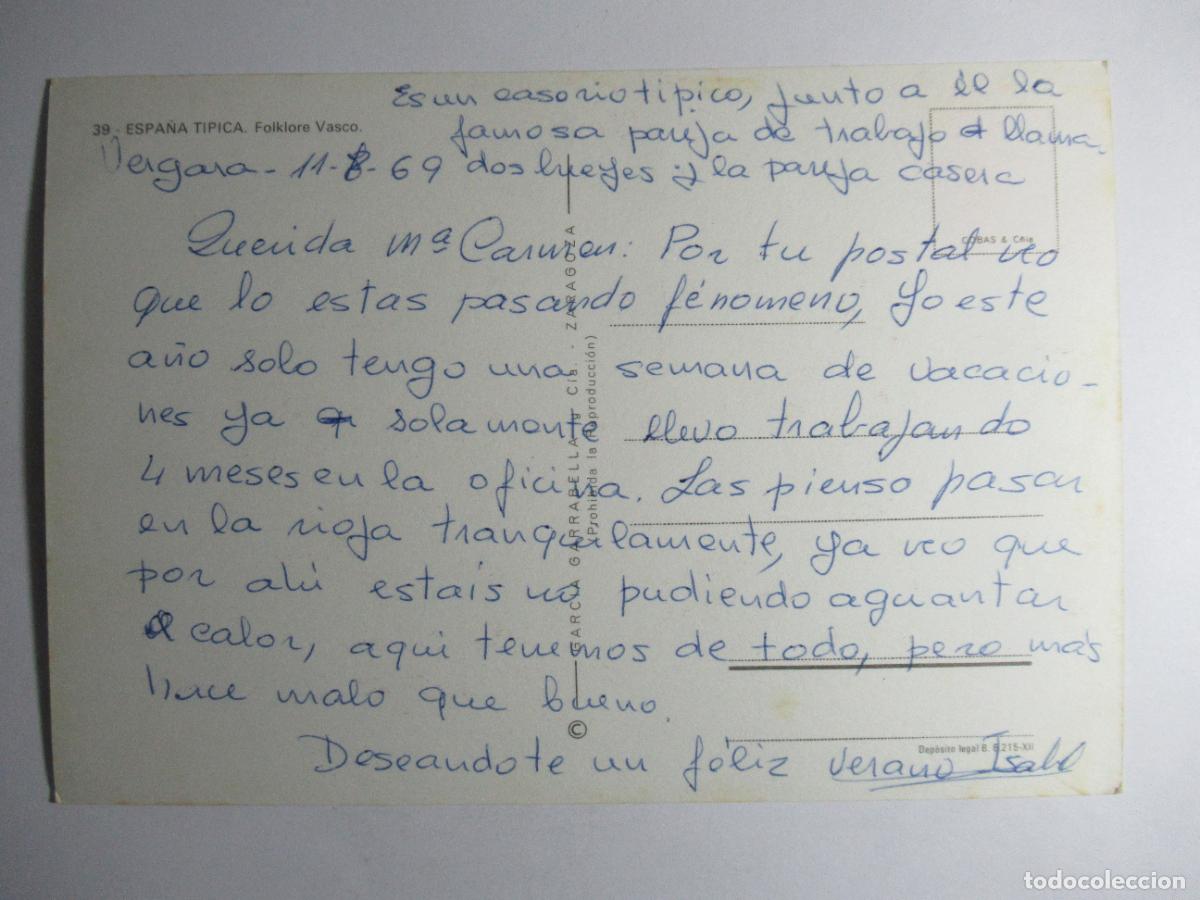 Es un casorio tipico, junto a él la
39 - ESPAÑA TIPICA. Folklore Vasco.
famosa pareja de trabajo llama
Vergara - 11-8-69 dos bueyes y la pareja casera
COBAS & Cñia
Querida Mª Carmen: Por tu postal veo
que lo estas pasando fénomeno, Yo este
año solo tengo una semana de vacacio-
nes ya q solamente llevo trabajando
4 meses en la oficina. Las pienso pasar
en la rioja tranquilamente, ya veo que
por ahí estaís no pudiendo aguantar
el calor, aqui tenemos de todo, pero más
hace malo que bueno.
Deseandote un féliz verano Isabel
© GARCIA GARRABELLA y Cía. - ZARAGOZA
(Prohibida la reproducción)
Depósito legal B. 6.215-XII
todocoleccion